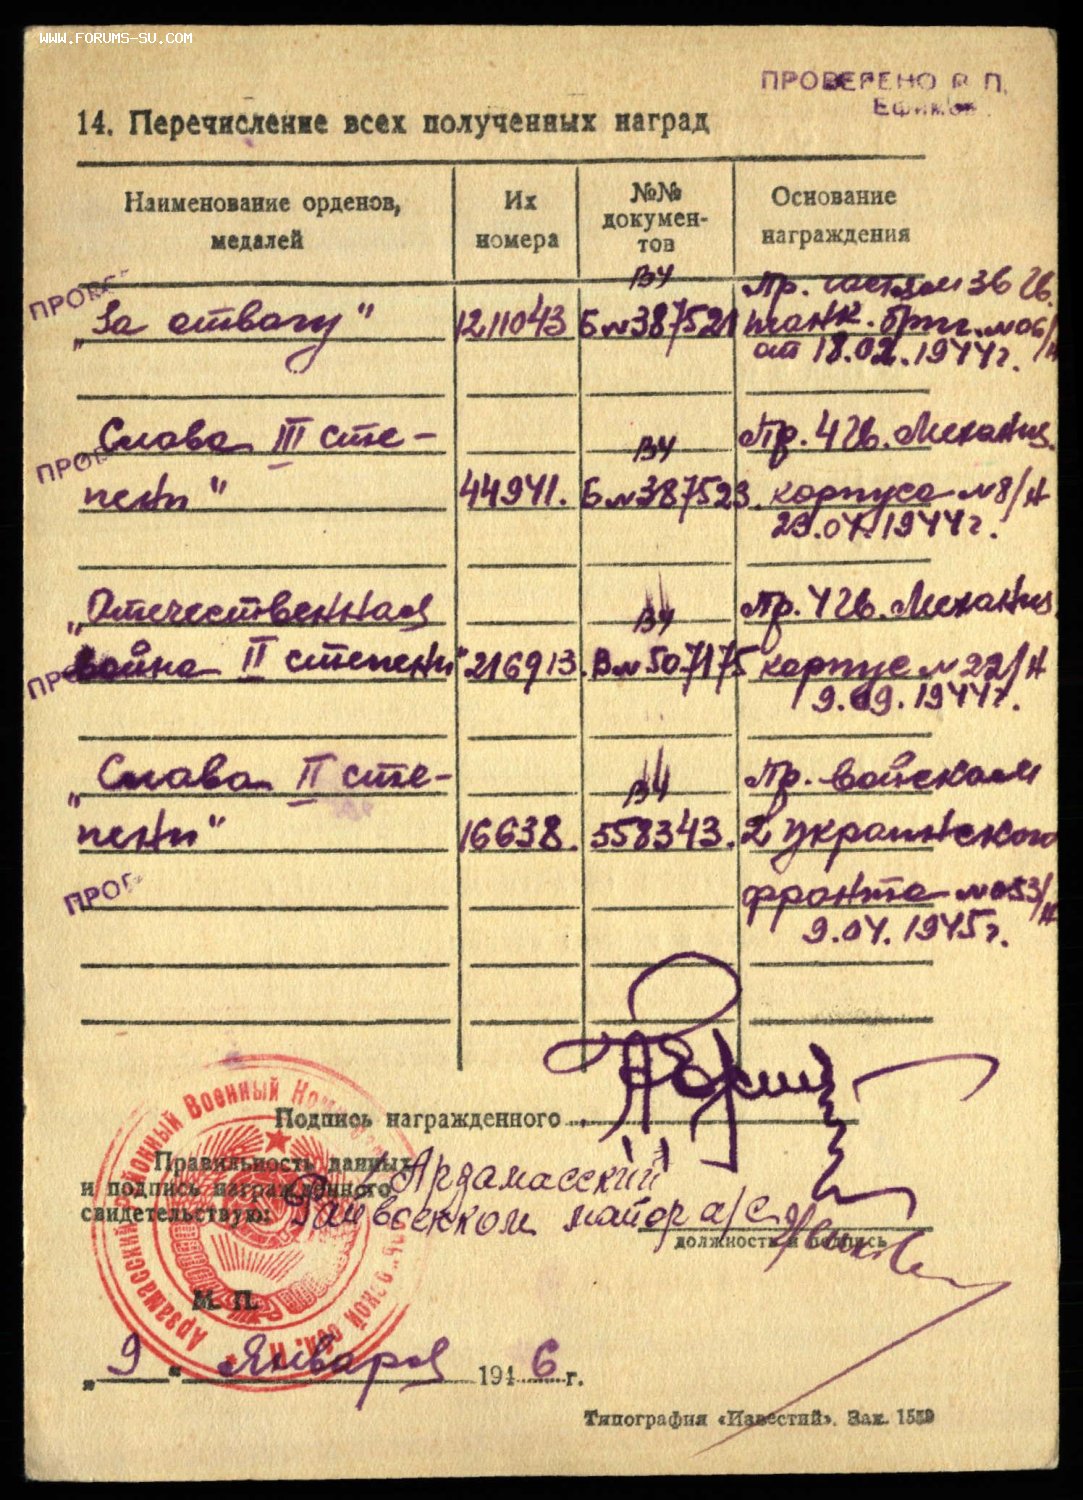 WWW.FORUMS-SU.COM
ПРОВЕРЕНО В. П.
14. Перечисление всех полученных наград
Наименование орденов, медалей
Их номера
№№ документов
Основание награждения
„За отвагу" 1211043 ВУ Б № 387521 Пр. частям 36 Гв.
танк. бриг. № 06/н
от 18.02.1944г.
„Слава III сте- ВУ Пр. 4 Гв. Механиз.
пени" 44941. Б № 387523. корпуса № 8/н
23.04.1944г.
„Отечественная ВУ Пр. 4 Гв. Механиз.
война II степени" 216913. В № 507175 корпус № 22/н
9.09.1944г.
„Слава II сте- ВУ Пр. войскам
пени" 16638. 558343. 2 украинского
фронта № 053/н
9.04.1945г.
Подпись награжденного
Правильность данных
и подпись награжденного
свидетельствую:
Арзамасский
Райвоенком майор а/с
должность и подпись
Арзамасский Районный Военный
М. П.
„ 9 " Января 1946 г.
Типография «Известий». Зак. 1559